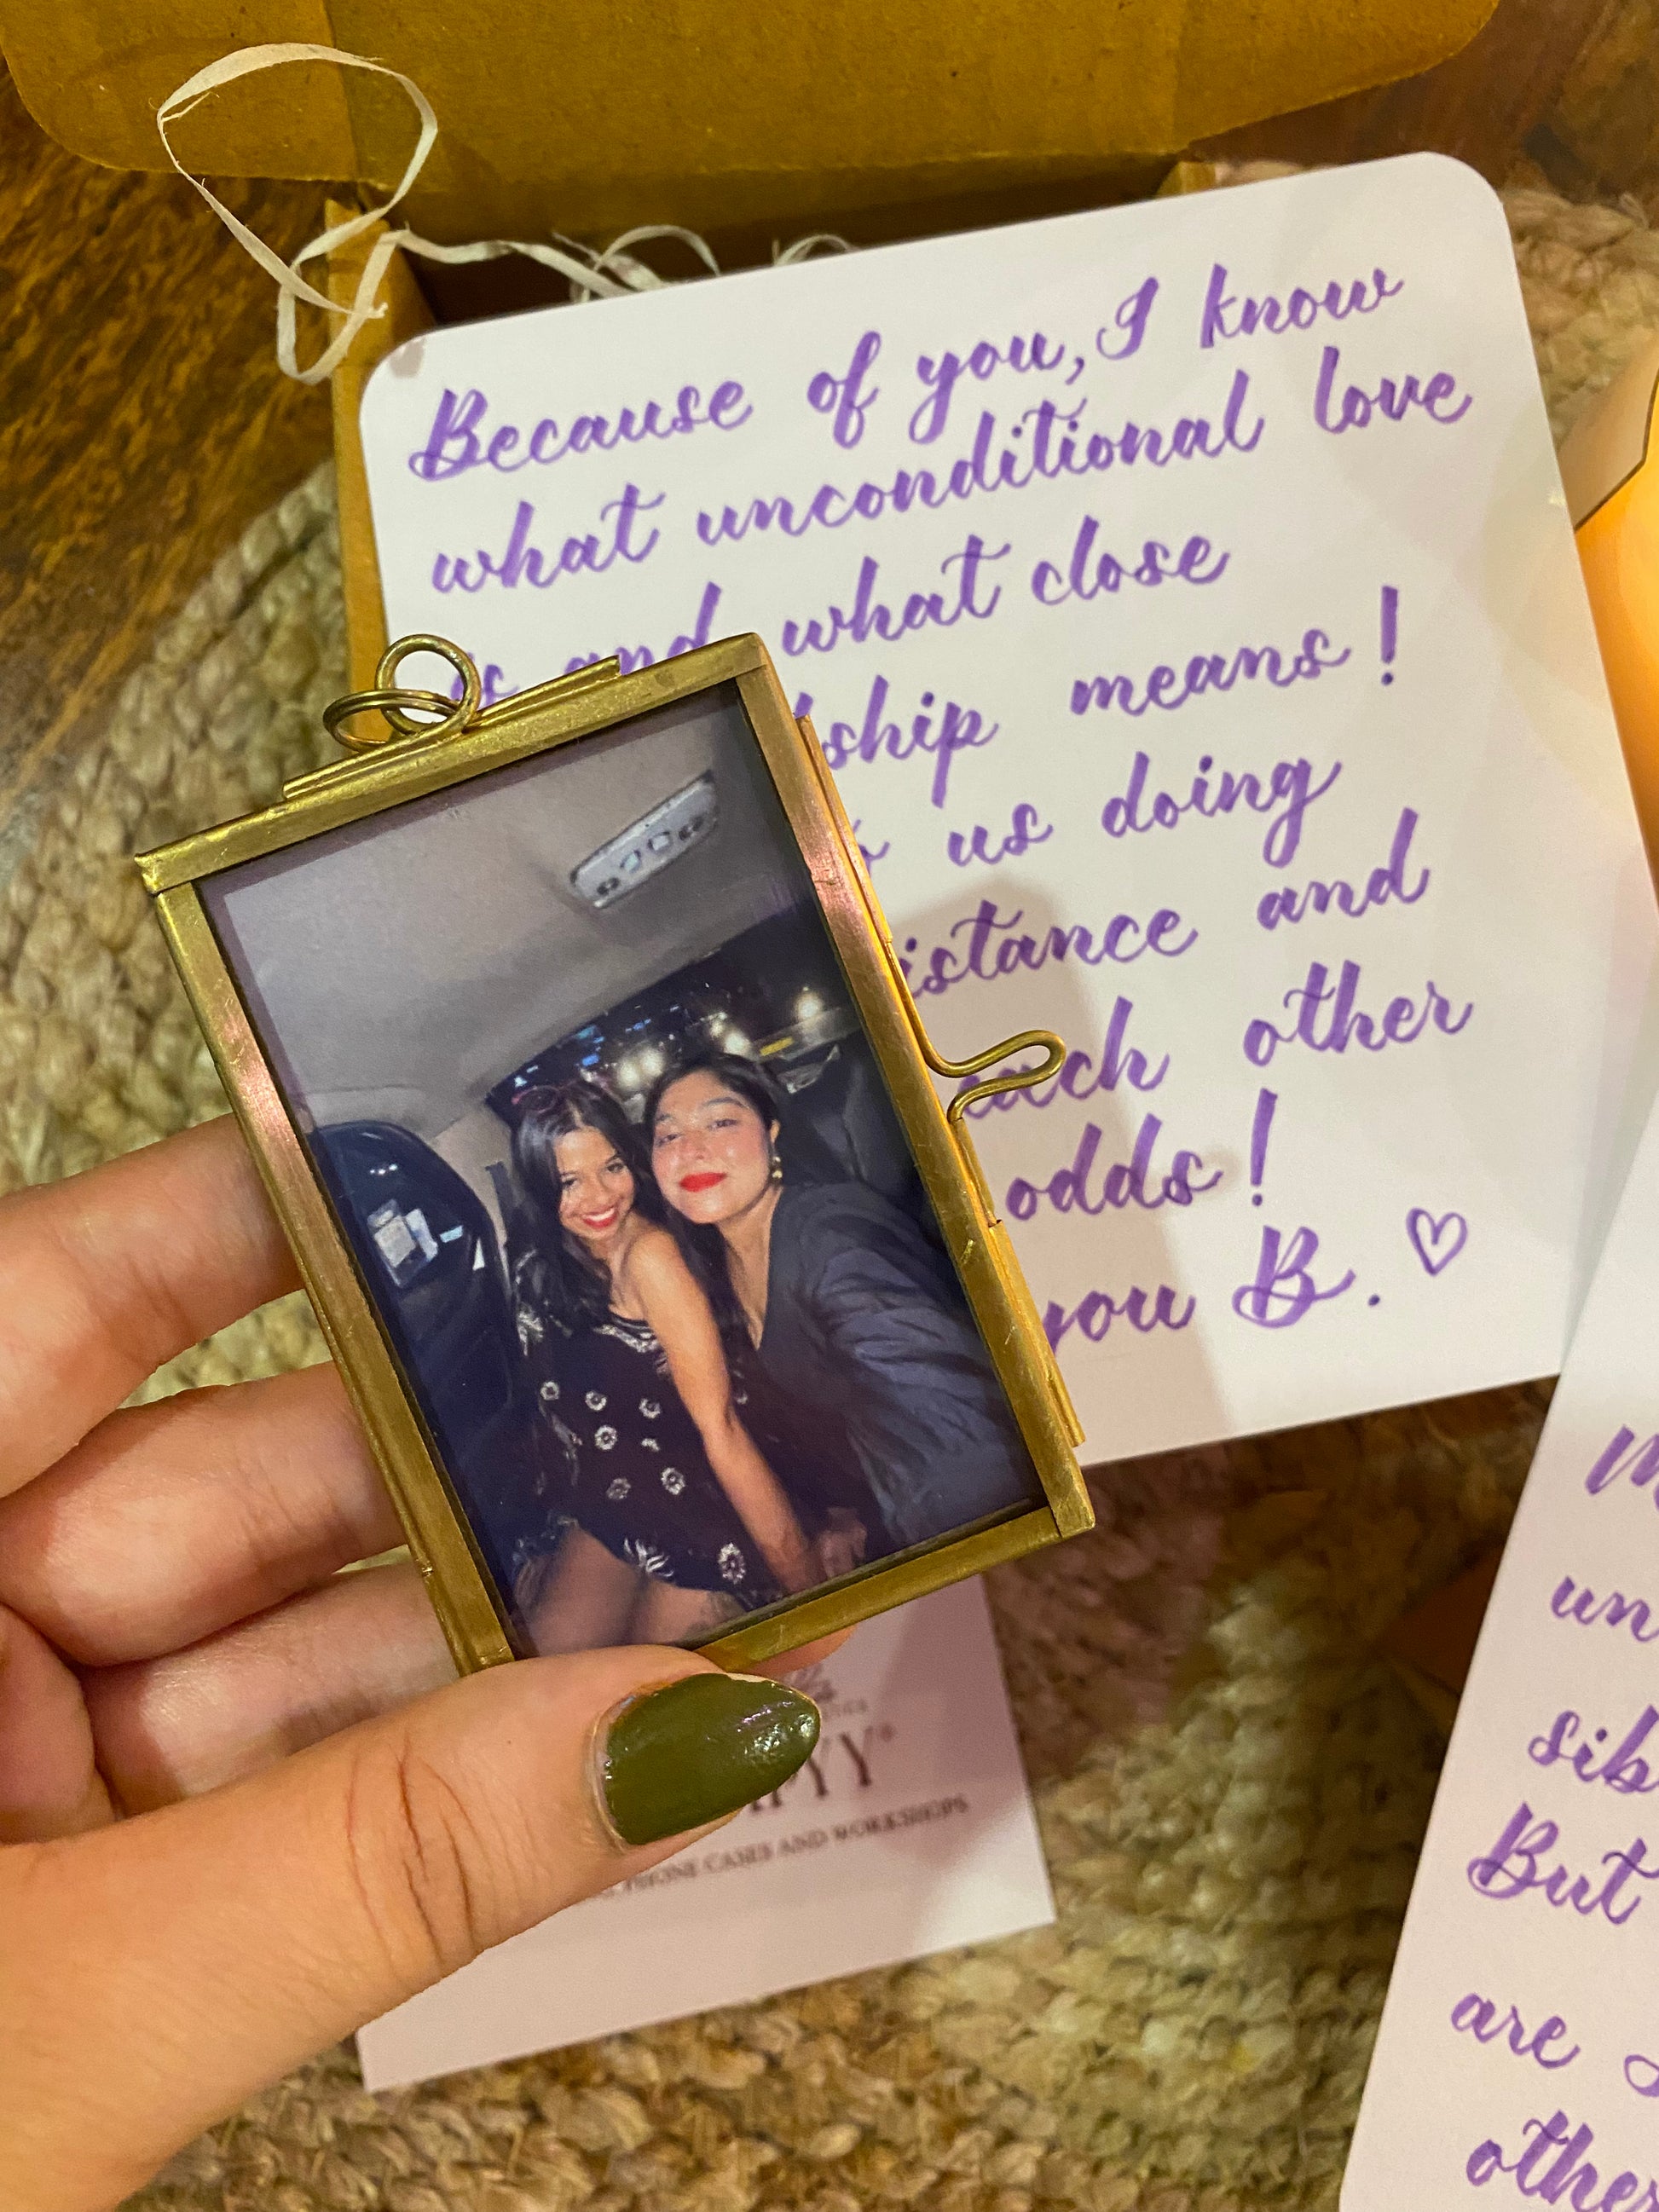 Because of you, I know
what unconditional love
is and what close
ship means!
us doing
istance and
each other
odds!
you B. ♡
PHONE CASES AND WORKSHOPS
un
sib
But
are
other